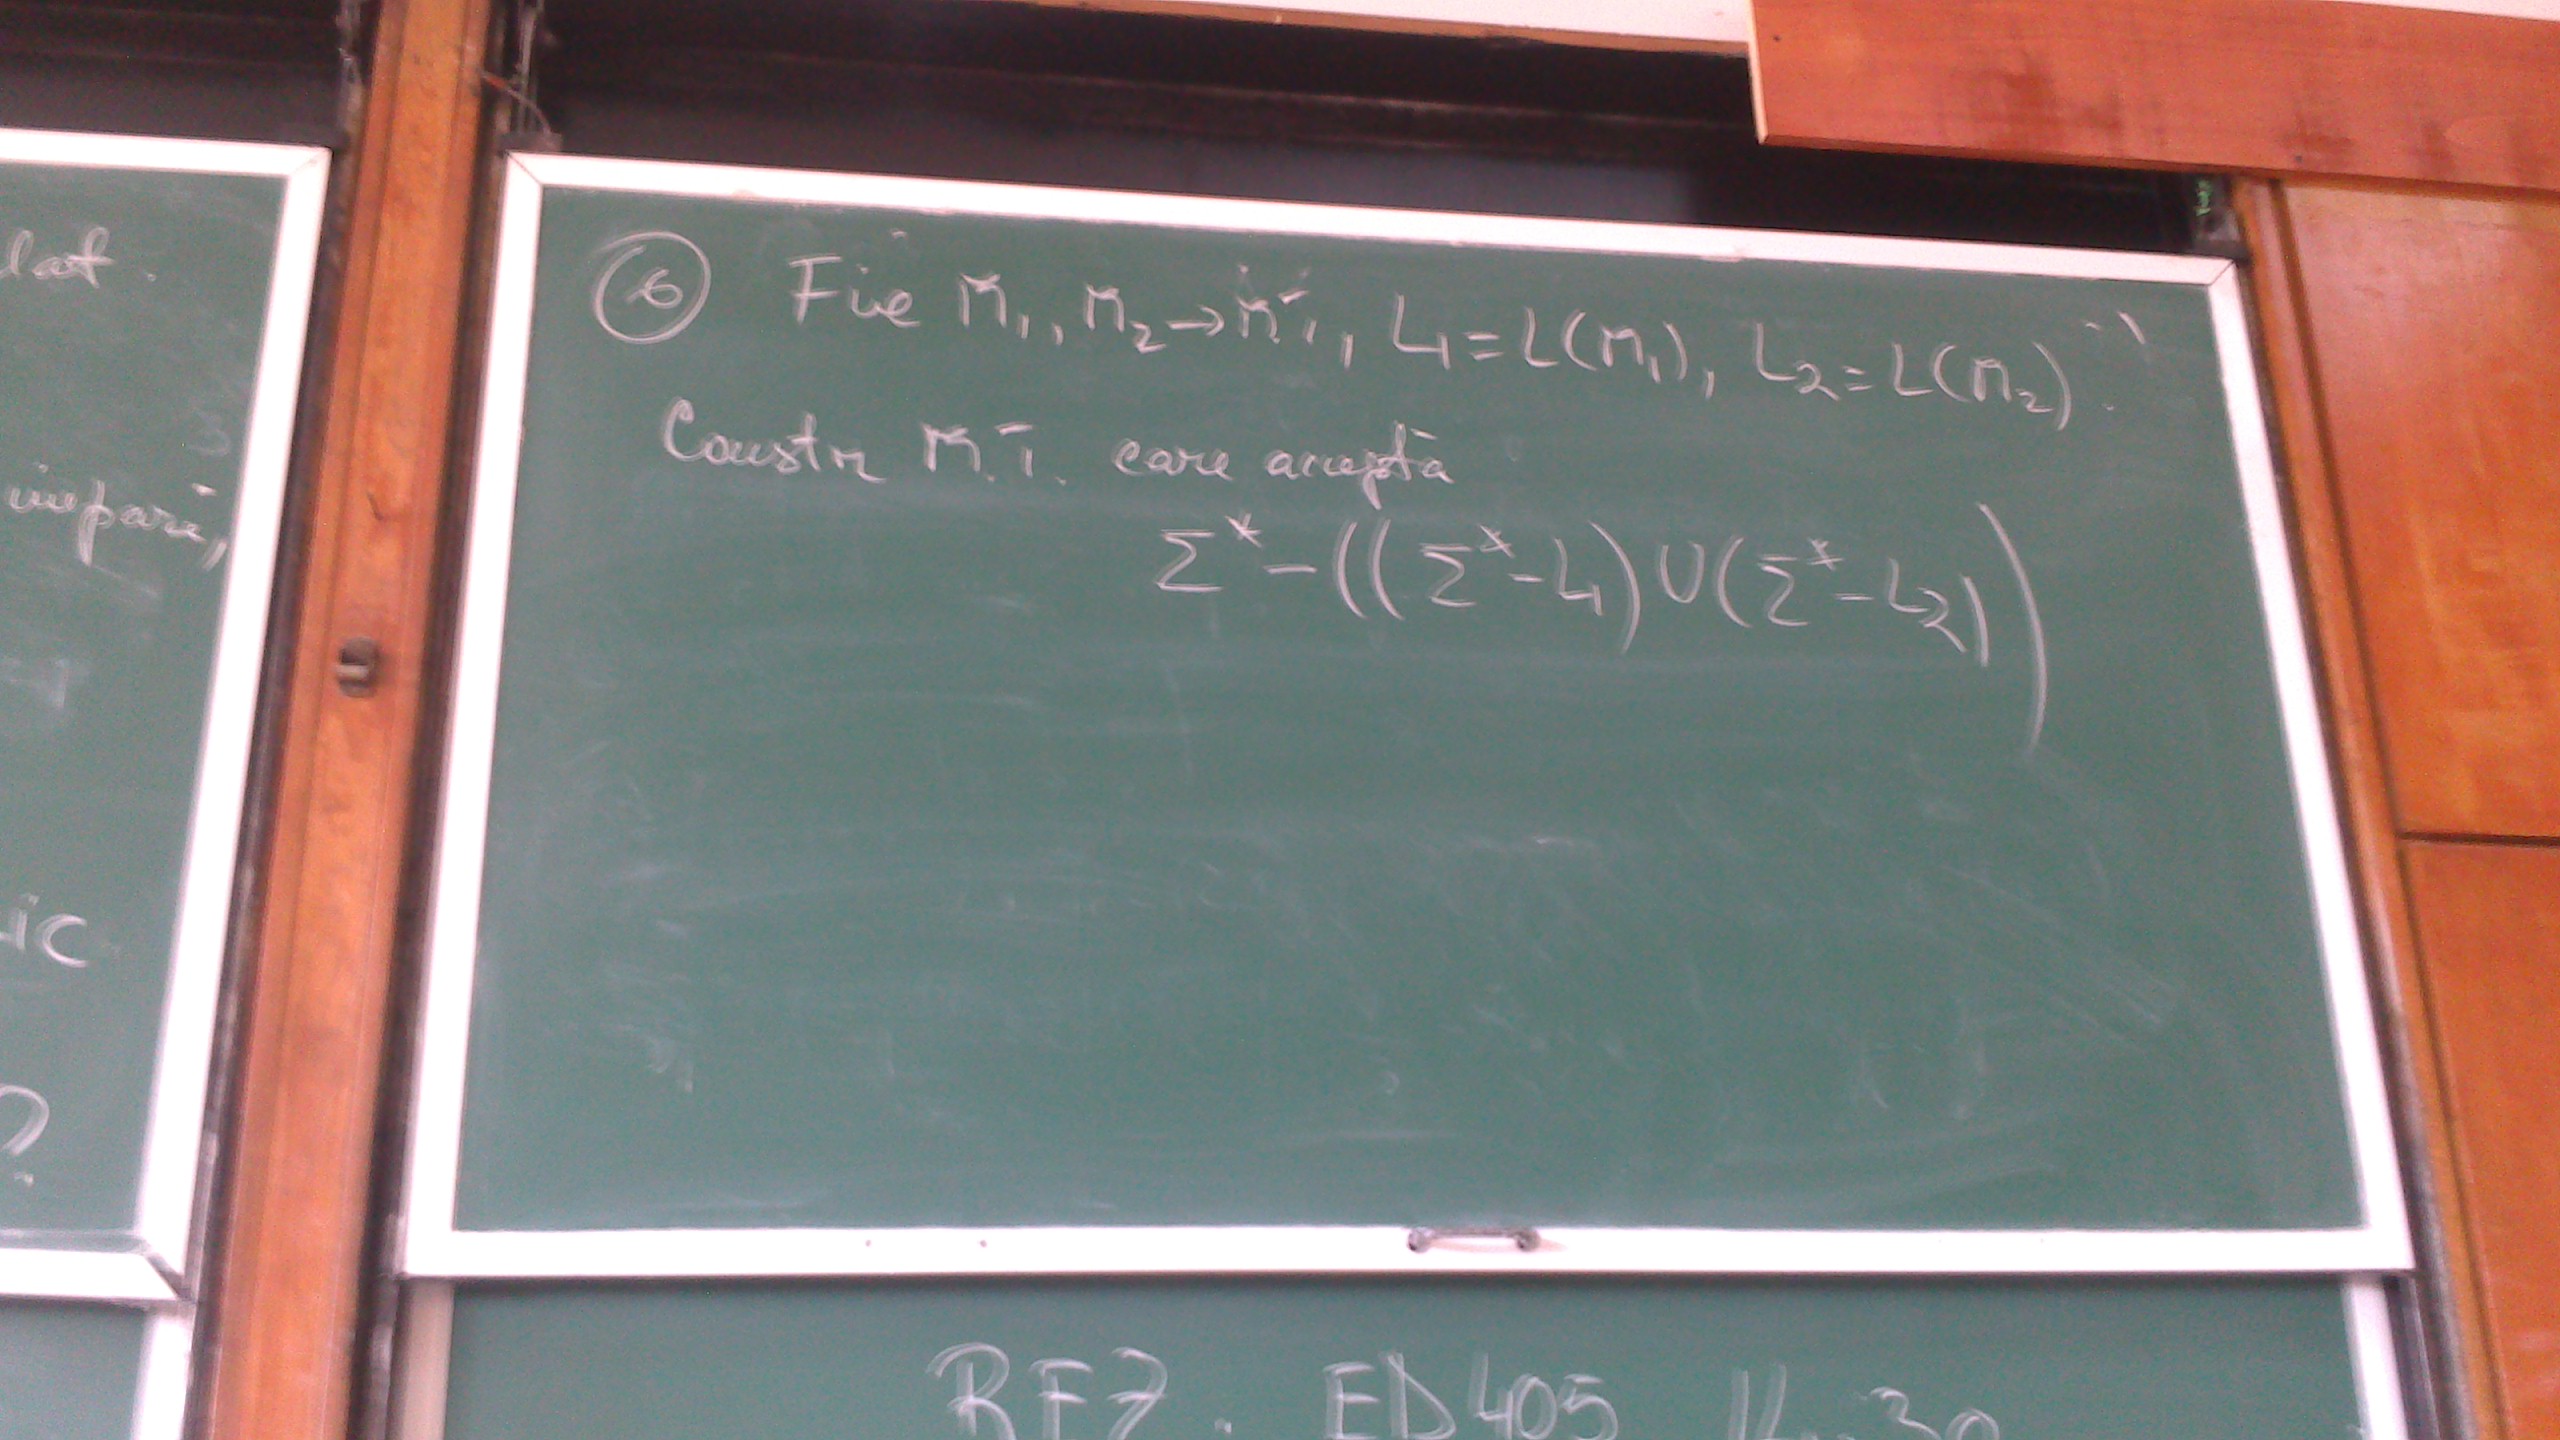 lat.
impari,
ic
?
6 Fie M1, M2 → M.T., L1 = L(M1), L2 = L(M2).
Constr M.T. care acceptă
Σ* - ((Σ* - L1) ∪ (Σ* - L2))
RF7. ED405 14.30